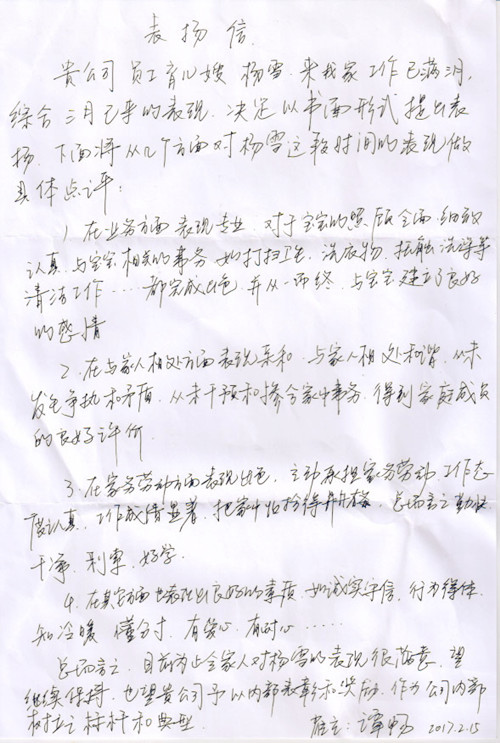 表扬信
贵公司员工育儿嫂 杨雪.来我家工作已满三月,
综合三月已来的表现.决定以书面形式提出表
扬.下面将从几个方面对杨雪这段时间的表现做
具体点评:
1.在业务方面表现专业.对于宝宝的照顾全面.细致
认真.与宝宝相关的事务 如打扫卫生.洗衣物.抚触.洗澡等
清洁工作……都完成出色.并从一而终.与宝宝建立了良好
的感情
2.在与家人相处方面表现亲和.与家人相处和谐.从未
发生争执和矛盾.从未干预和掺合家中事务.得到家庭成员
的良好评价
3.在家务劳动方面表现出色.主动承担家务劳动.工作态
度认真.工作成绩显著.把家中收拾得井井有条.总而言之勤快
干净.利索.好学.
4.在其它方面也表现出良好的素质.如诚实守信.行为得体.
知冷暖 懂分寸.有爱心.有耐心……
总而言之.目前为止全家人对杨雪的表现很满意.望
继续保持.也望贵公司予以内部表彰和奖励.作为公司内部
树立之标杆和典型.
雇主:谭畅 2017.2.15